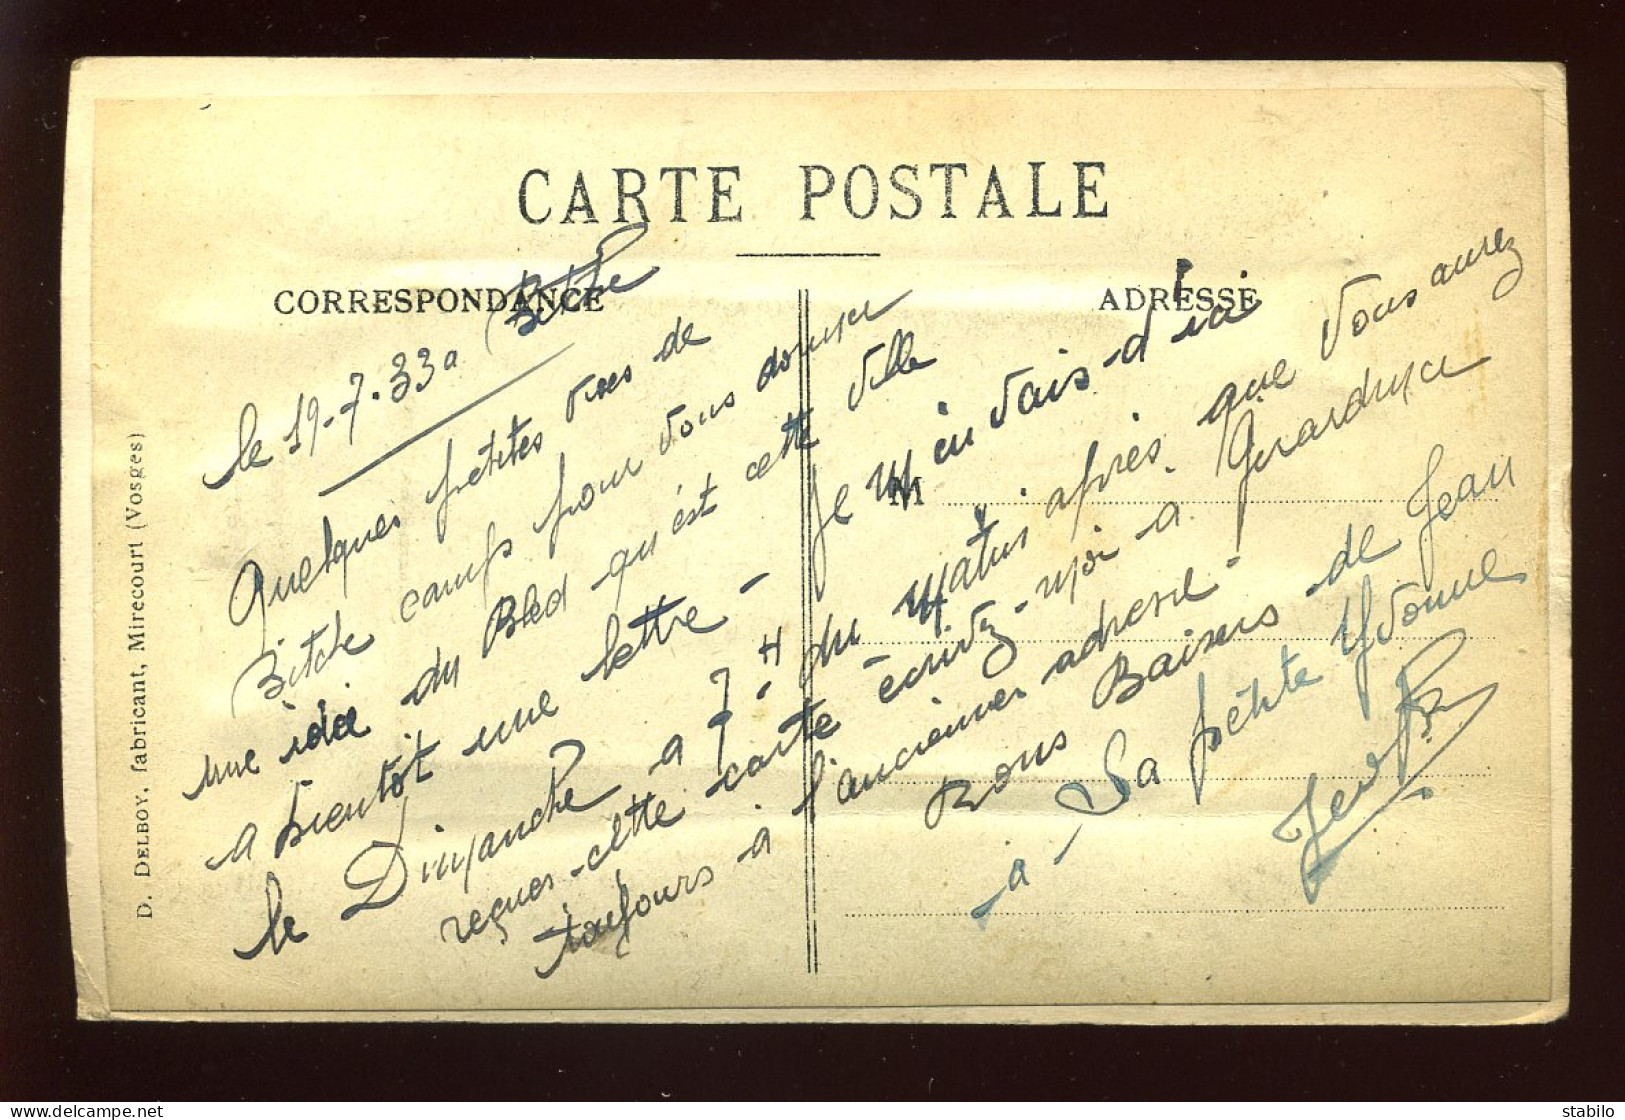 CARTE POSTALE
CORRESPONDANCE
ADRESSE
M
D. DELBOY, fabricant, Mirecourt (Vosges)
le 19-7-33 a Bitche
Quelques petites vues de
Bitche camp pour vous donner
une idée du Bled qu'est cette ville
a bientôt une lettre - Je m'en vais d'ici
le Dimanche a 7H du matin après que vous aurez
reçues cette carte écrivez-moi a Girardmer
toujours a l'ancienner adresse -
Bons Baisers de Jean
a La petite Yvonne
stabilo